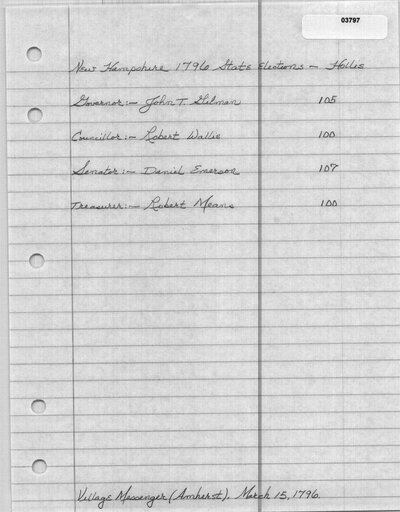 03797
New Hampshire 1796 State Elections - Hollis
Governor:- John T. Gilman 105
Councillor:- Robert Wallis 100
Senator:- Daniel Emerson 107
Treasurer:- Robert Means 100
Village Messenger (Amherst). March 15, 1796.